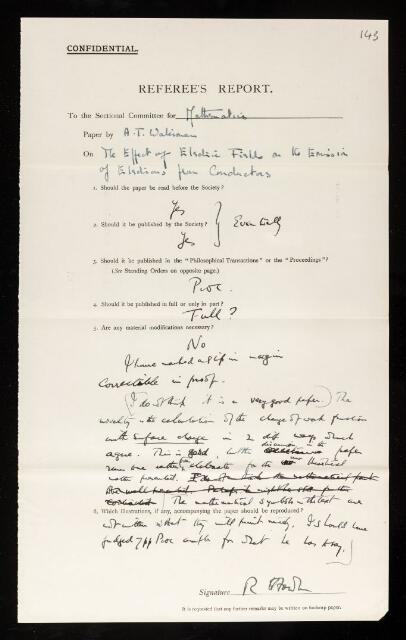 143
CONFIDENTIAL.
REFEREE'S REPORT.
To the Sectional Committee for Mathematics
Paper by A. T. Waterman
On The Effect of Electric Fields on the Emission
of Electrons from Conductors
1. Should the paper be read before the Society?
Yes
2. Should it be published by the Society? Eventually
Yes
3. Should it be published in the "Philosophical Transactions" or the "Proceedings"?
(See Standing Orders on opposite page.)
Proc.
4. Should it be published in full or only in part?
Full?
5. Are any material modifications necessary?
No
I have marked a slip in margin
correctable in proof.
(I do not think it is a very good paper.) The
novelty is the calculation of the change of work function
with surface charge in 2 diff ways which
agree. This is good, but the discussion in the paper
runs on rather for the theoretical
The mathematical symbols in the text are
6. Which illustrations, if any, accompanying the paper should be reproduced?
not written so that they will print nicely. I should have
judged 7 pp Proc ample for what he has to say.
Signature R H Fowler
It is requested that any further remarks may be written on foolscap paper.